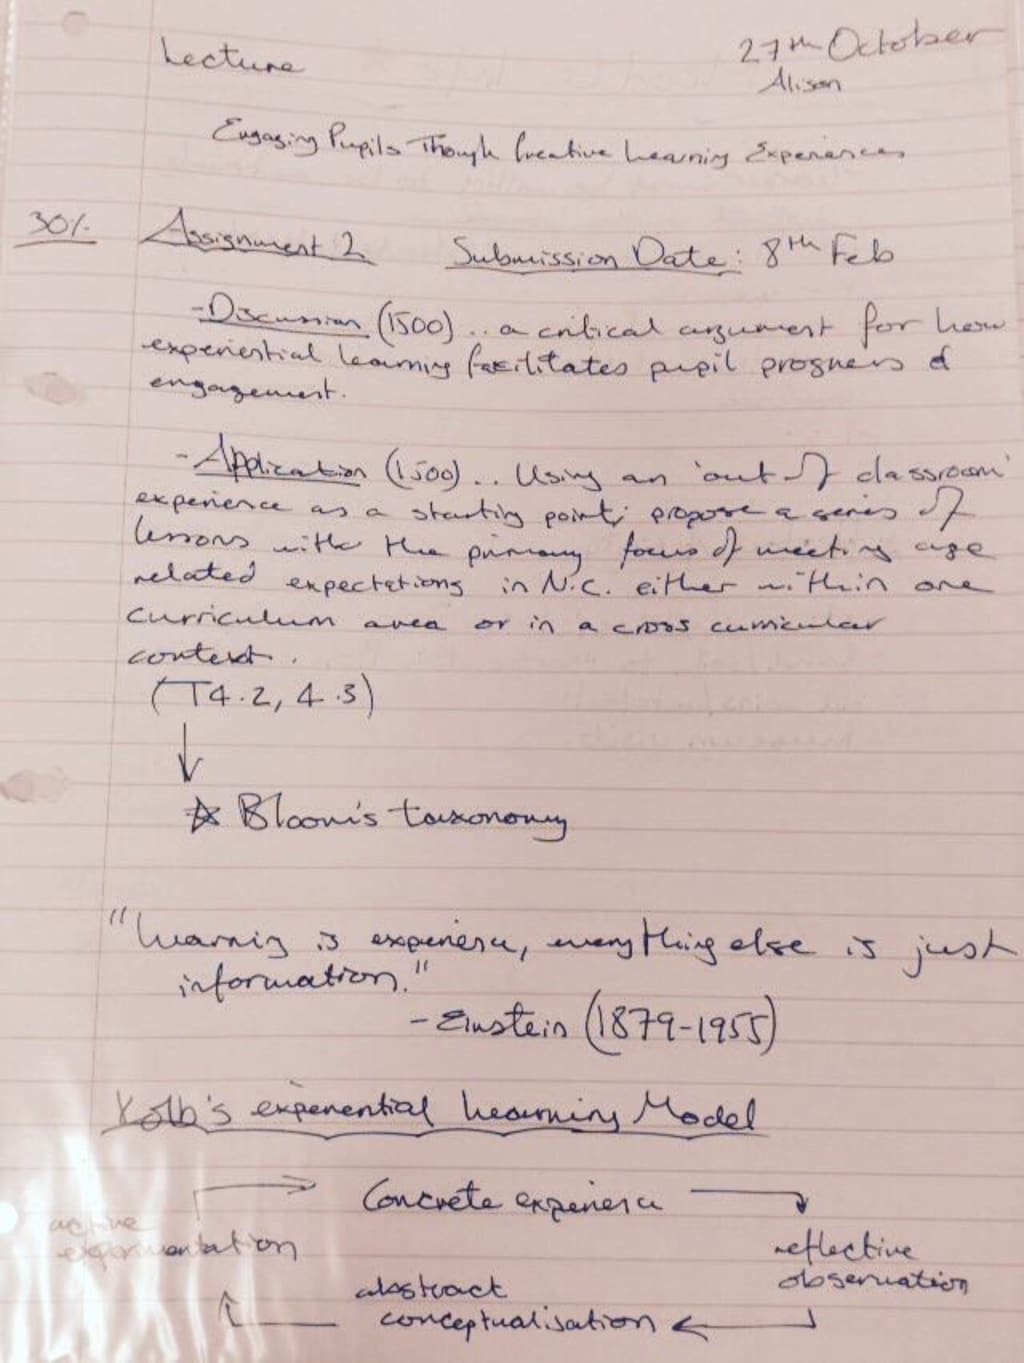 Lecture
27th October
Alison
Engaging Pupils Though Creative Learning Experiences
30%
Assignment 2 Submission Date: 8th Feb
- Discussion (1500) .. a critical argument for how
experiential learning facilitates pupil progress &
engagement.
- Application (1500) .. Using an 'out of classroom'
experience as a starting point, propose a series of
lessons with the primary focus of meeting age
related expectations in N.C. either within one
curriculum area or in a cross curricular
context.
(T4.2, 4.3)
☆ Bloom's taxonomy
"Learning is experience, everything else is just
information."
- Einstein (1879-1955)
Kolb's experiential Learning Model
Concrete experience
reflective
observation
abstract
conceptualisation
active
experimentation